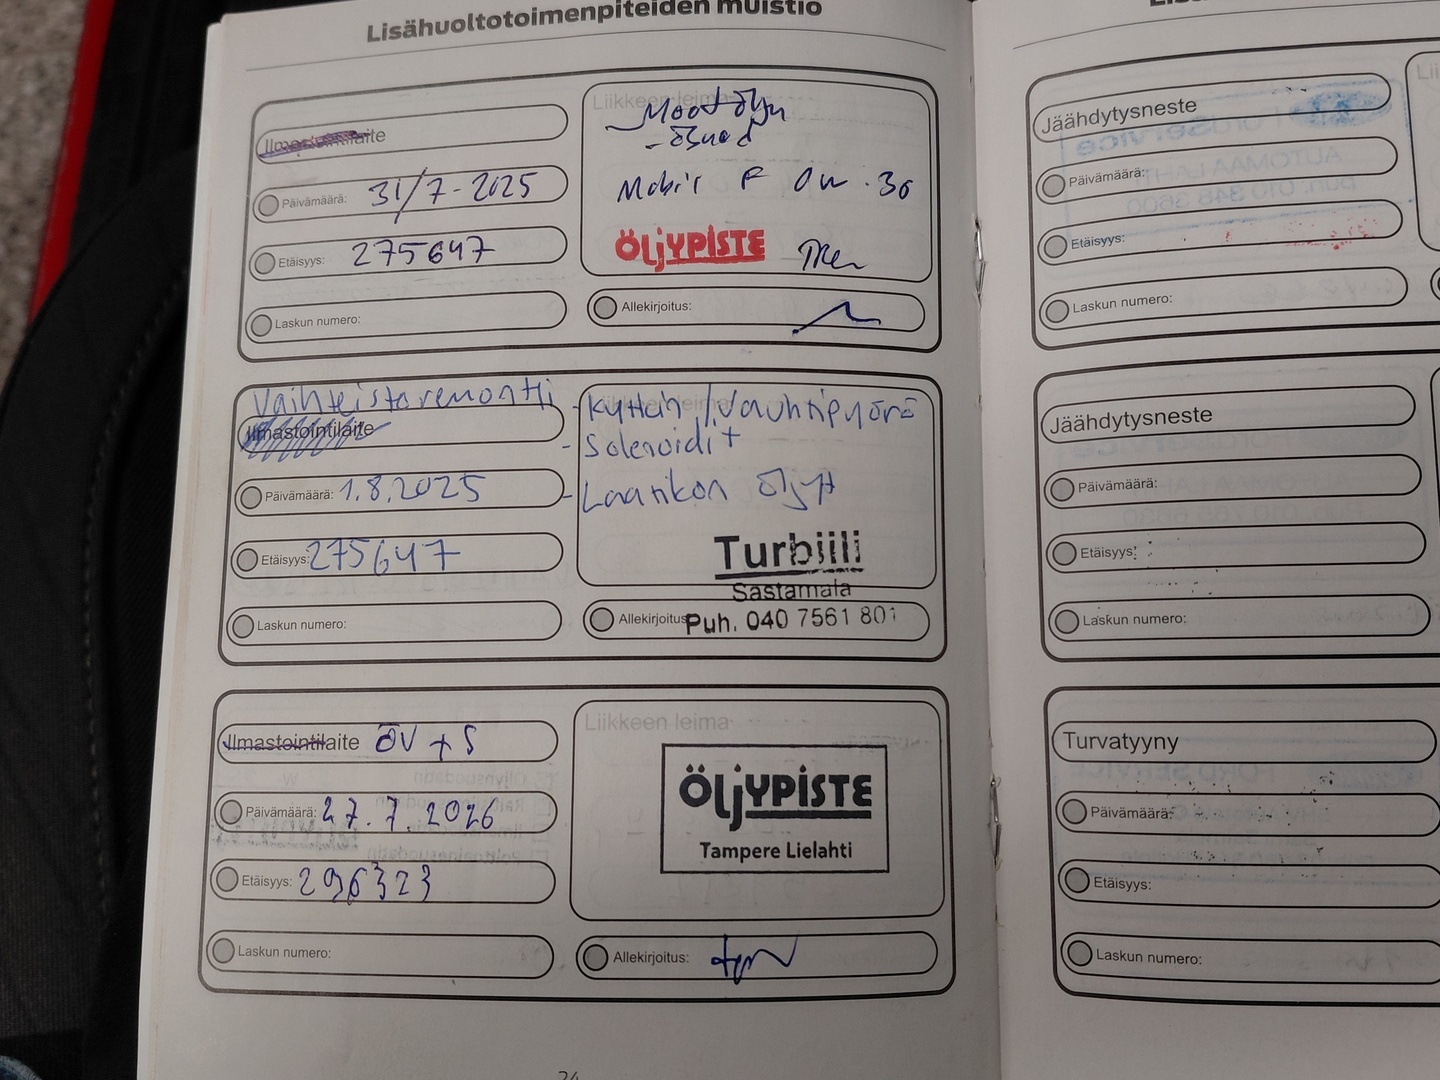 Lisähuoltotoimenpiteiden muistio
Ilmastointilaite
Päivämäärä: 31/7-2025
Etäisyys: 275647
Laskun numero:
Liikkeen leima
Moottoriöljyn
Mobil F 0w-30
ÖljYPISTE
Tre
Allekirjoitus:
Vaihteistoremontti
Ilmastointilaite
Päivämäärä: 1.8.2025
Etäisyys: 275647
Laskun numero:
Liikkeen leima
- Kytkin / Vauhtipyörä
- Solenoidit
- Laatikon öljyt
Turbiili
Sastamala
Puh. 040 7561 801
Allekirjoitus
Ilmastointilaite ÖV + S
Päivämäärä: 27.7.2026
Etäisyys: 296323
Laskun numero:
Liikkeen leima
ÖljYPISTE
Tampere Lielahti
Allekirjoitus:
Jäähdytysneste
Päivämäärä:
Etäisyys:
Laskun numero:
Jäähdytysneste
Päivämäärä:
Etäisyys:
Laskun numero:
Turvatyyny
Päivämäärä:
Etäisyys:
Laskun numero: